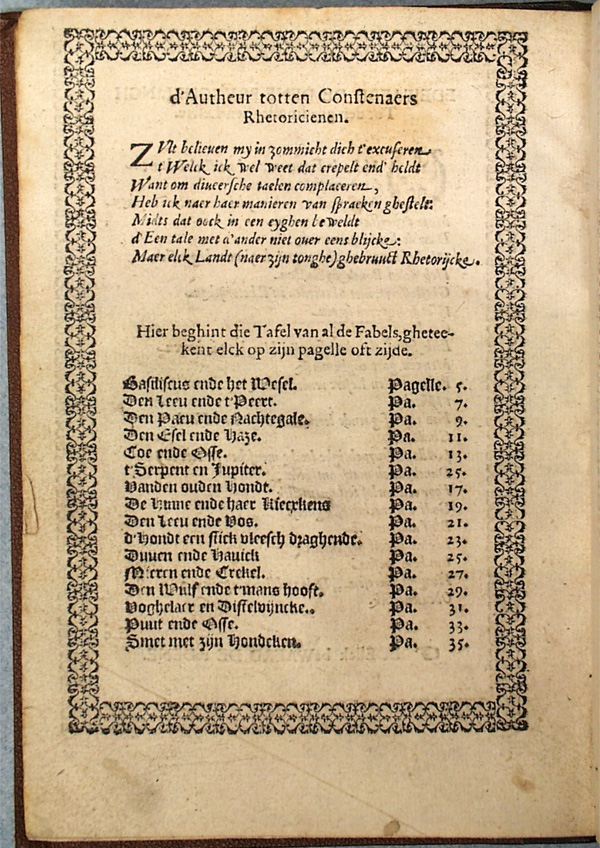 d'Autheur totten Constenaers
Rhetoricienen.
ZVlt belieuen my in zommicht dich t'excuseren
t'Welck ick wel weet dat crepelt end' heldt
Want om diuerſche taelen complaceren,
Heb ick naer haer manieren van ſpraeken gheſtelt:
Midts dat oock in een eyghen beweldt
d'Een tale met d'ander niet ouer eens blijcke:
Maer elck Landt (naer zijn tonghe) ghebruuct Rhetorijcke.
Hier beghint die Tafel van al de Fabels, ghetee-
kent elck op zijn pagelle oft zijde.
Basiliscus ende het Wesel. Pagelle. 5.
Den Leeu ende t'Peert. Pa. 7.
Den Paeu ende Nachtegale. Pa. 9.
Den Esel ende Haze. Pa. 11.
Coe ende Osse. Pa. 13.
t'Serpent en Jupiter. Pa. 25.
Vanden ouden Hondt. Pa. 17.
De Hinne ende haer Kieckens Pa. 19.
Den Leeu ende Vos. Pa. 21.
d'Hondt een stick vleesch draghende. Pa. 23.
Duuen ende Hauick Pa. 25.
Mieren ende Crekel. Pa. 27.
Den Wulf ende t'mans hooft. Pa. 29.
Voghelaer en Distelvijncke. Pa. 31.
Puut ende Osse. Pa. 33.
Smet met zijn Hondeken. Pa. 35.